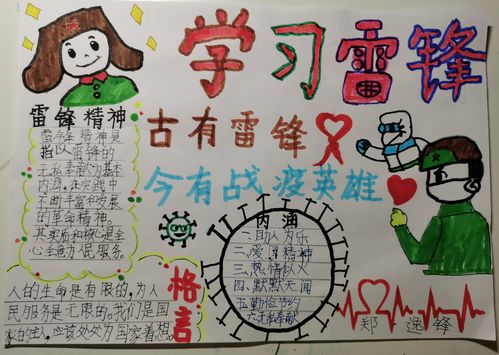 学习雷锋
古有雷锋
今有战疫英雄
雷锋精神
雷锋精神是
指以雷锋的
无私奉献为基本
内涵,在实践中
不断丰富和发展
的革命精神,
其实质和核心是全
心全意为人民服务。
内涵
一.助人为乐
二.爱国精神
三.热情似火
四.默默无闻
五.勤俭节约
六.无私奉献
格言
人的生命是有限的,为人
民服务是无限的。我们是国
家的主人,应该处处为国家着想。
郑逸锋